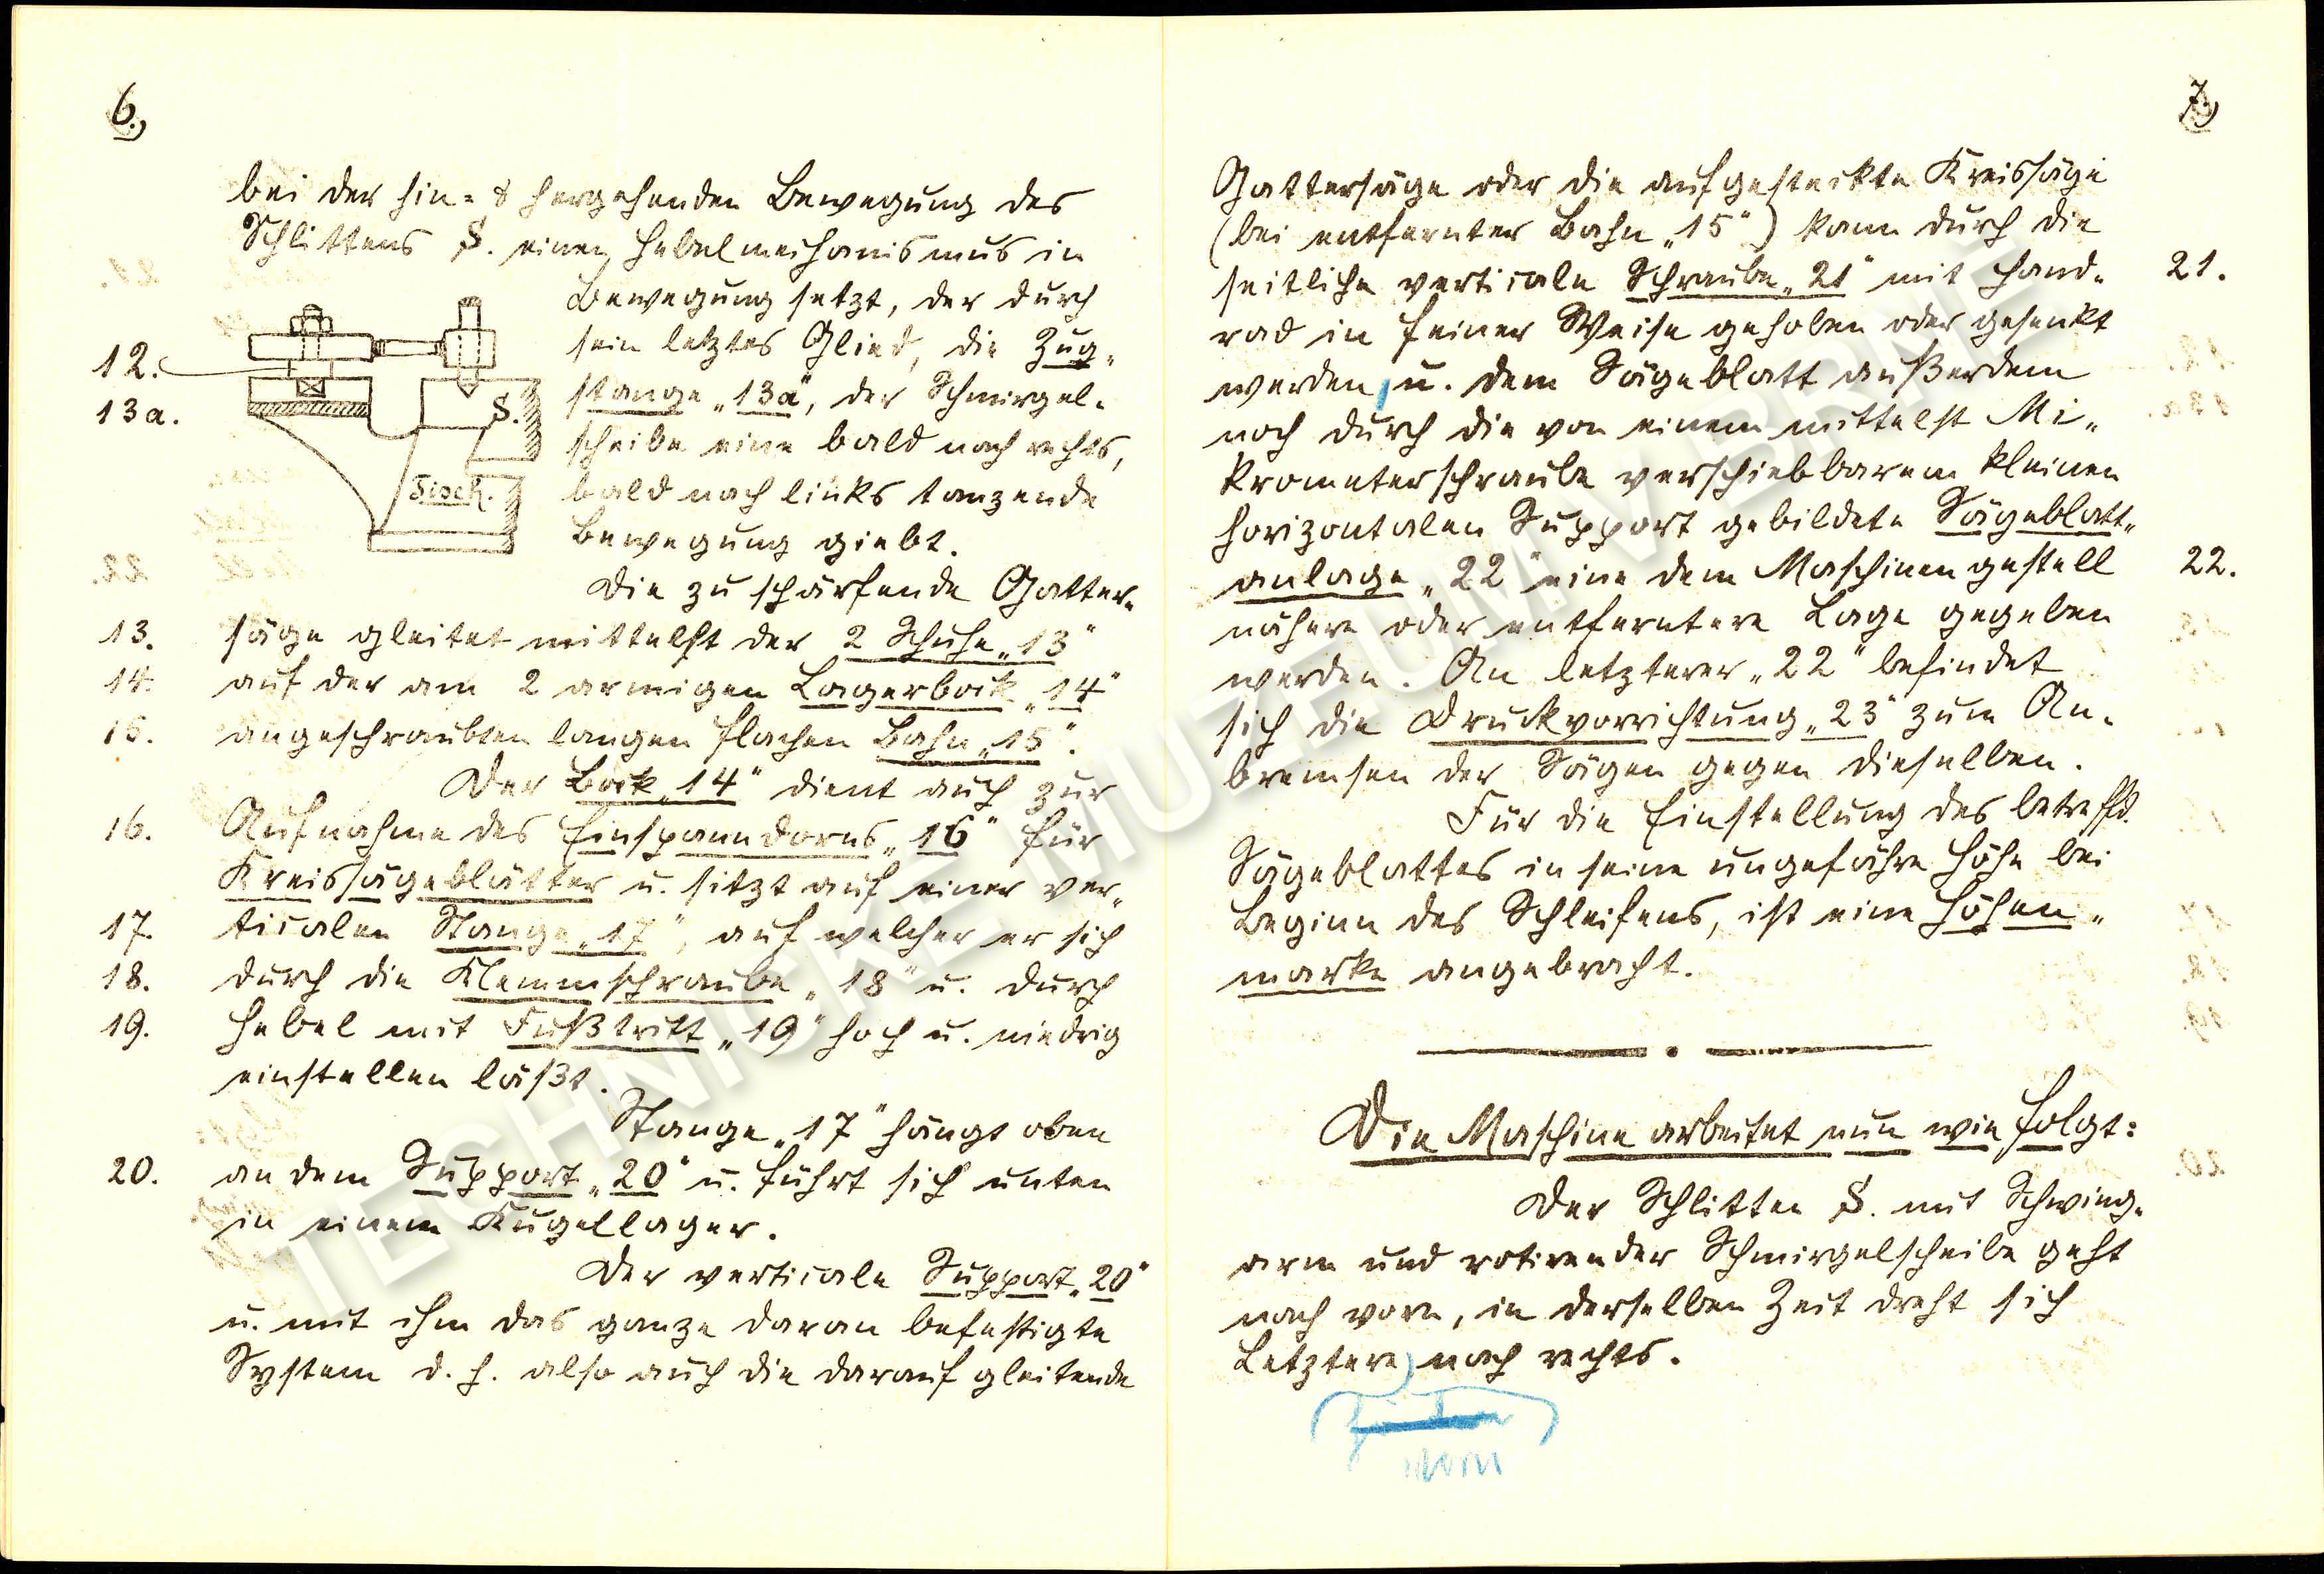 6.)
bei der hin- & hergehenden Bewegung des
Schlittens S. einen Hebelmechanismus in
Bewegung setzt, der durch
sein letztes Glied, die Zug-
12.
stange „13a“, der Schmirgel-
13a.
S.
scheibe eine bald nach rechts,
bald nach links tanzende
Tisch.
Bewegung giebt.
Die zu schärfende Gatter-
13. säge gleitet mittelst der 2 Schuhe „13“
14. auf der am 2 armigen Lagerbock „14“
15. angeschraubten langen flachen Bahn „15“.
Der Bock „14“ dient auch zur
16. Aufnahme des Einspanndorns „16“ für
Kreissägeblätter u. sitzt auf einer ver-
17. ticalen Stange „17“, auf welcher er sich
18. durch die Klemmschraube „18“ u. durch
19. Hebel mit Fußtritt „19“ hoch u. niedrig
einstellen läßt.
Stange „17“ hängt oben
20. an dem Support „20“ u. führt sich unten
in einem Kugellager.
Der verticale Support „20“
u. mit ihm das ganze daran befestigte
System d. h. also auch die darauf gleitende
7.)
Gattersäge oder die aufgesteckte Kreissäge
(bei entfernter Bahn „15“) kann durch die
seitliche verticale Schraube „21“ mit Hand- 21.
rad in feiner Weise gehoben oder gesenkt
werden, u. dem Sägeblatt außerdem
noch durch die von einem mittelst Mi-
krometerschraube verschiebbarem kleinen
horizontalen Support gebildete Sägeblatt-
anlage „22“ eine dem Maschinengestell 22.
nähere oder entferntere Lage gegeben
werden. An letzterer „22“ befindet
sich die Druckvorrichtung „23“ zum An-
bremsen der Sägen gegen dieselben.
Für die Einstellung des betreffd.
Sägeblattes in seine ungefähre Höhe bei
Beginn des Schleifens, ist eine Höhen-
marke angebracht.
Die Maschine arbeitet nun wie folgt:
Der Schlitten S. mit Schwing-
arm und rotirender Schmirgelscheibe geht
nach vorn, in derselben Zeit dreht sich
Letztere nach rechts.
vorn
TECHNICKÉ MUZEUM V BRNĚ